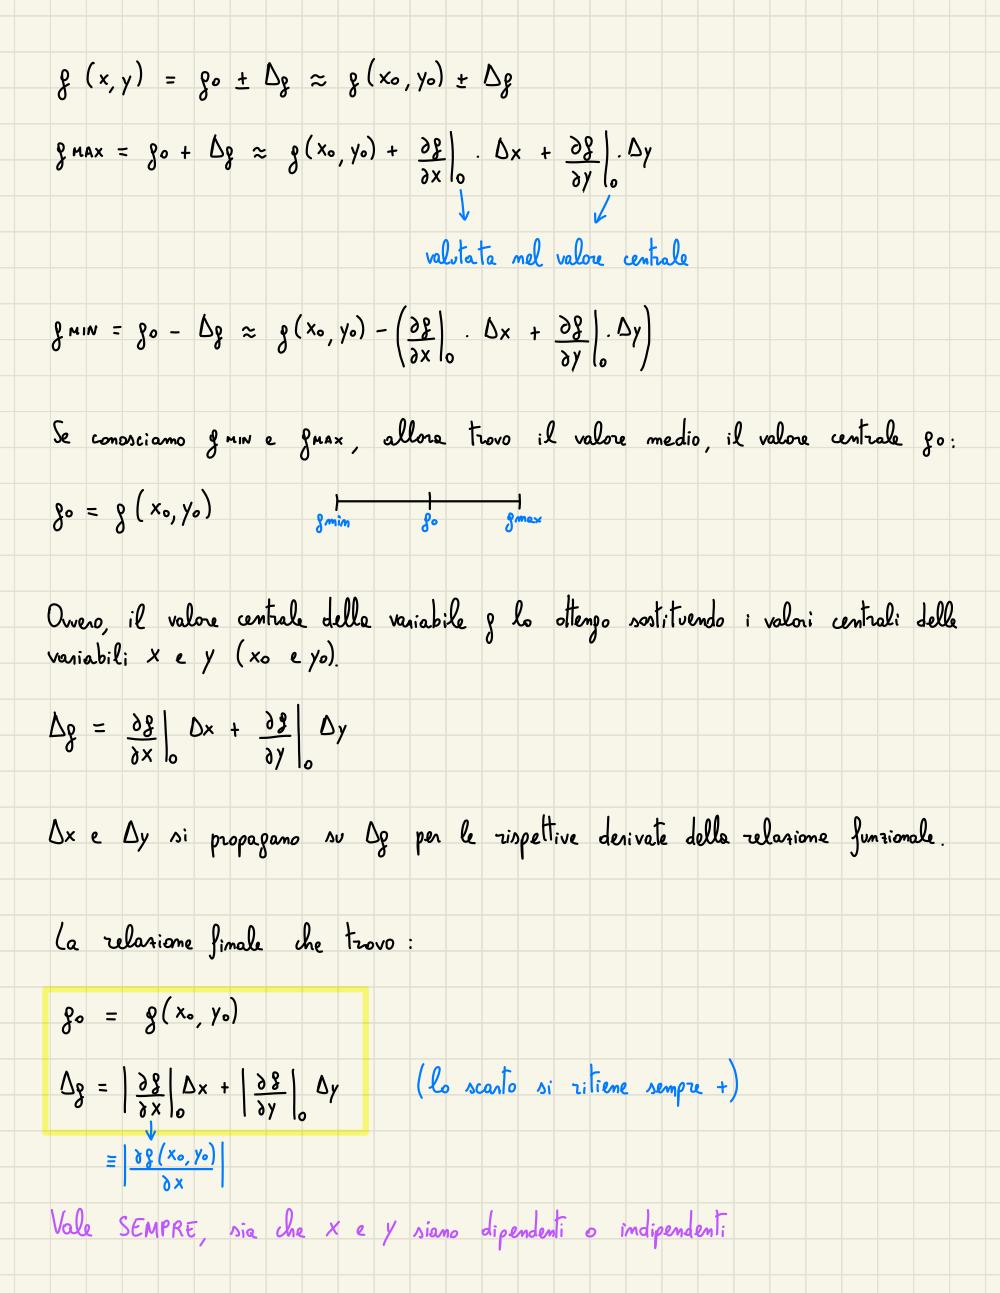 g (x, y) = g₀ ± Δg ≈ g(x₀, y₀) ± Δg
g MAX = g₀ + Δg ≈ g(x₀, y₀) + ∂g/∂x|₀ · Δx + ∂g/∂y|₀ · Δy
valutata nel valore centrale
g MIN = g₀ - Δg ≈ g(x₀, y₀) - (∂g/∂x|₀ · Δx + ∂g/∂y|₀ · Δy)
Se conosciamo g MIN e g MAX, allora trovo il valore medio, il valore centrale g₀:
g₀ = g (x₀, y₀)
g min g₀ g max
Ovvero, il valore centrale della variabile g lo ottengo sostituendo i valori centrali delle
variabili x e y (x₀ e y₀).
Δg = ∂g/∂x|₀ Δx + ∂g/∂y|₀ Δy
Δx e Δy si propagano su Δg per le rispettive derivate della relazione funzionale.
La relazione finale che trovo:
g₀ = g(x₀, y₀)
Δg = |∂g/∂x|₀ Δx + |∂g/∂y|₀ Δy (lo scarto si ritiene sempre +)
≡ |∂g(x₀, y₀)/∂x|
Vale SEMPRE, sia che x e y siano dipendenti o indipendenti